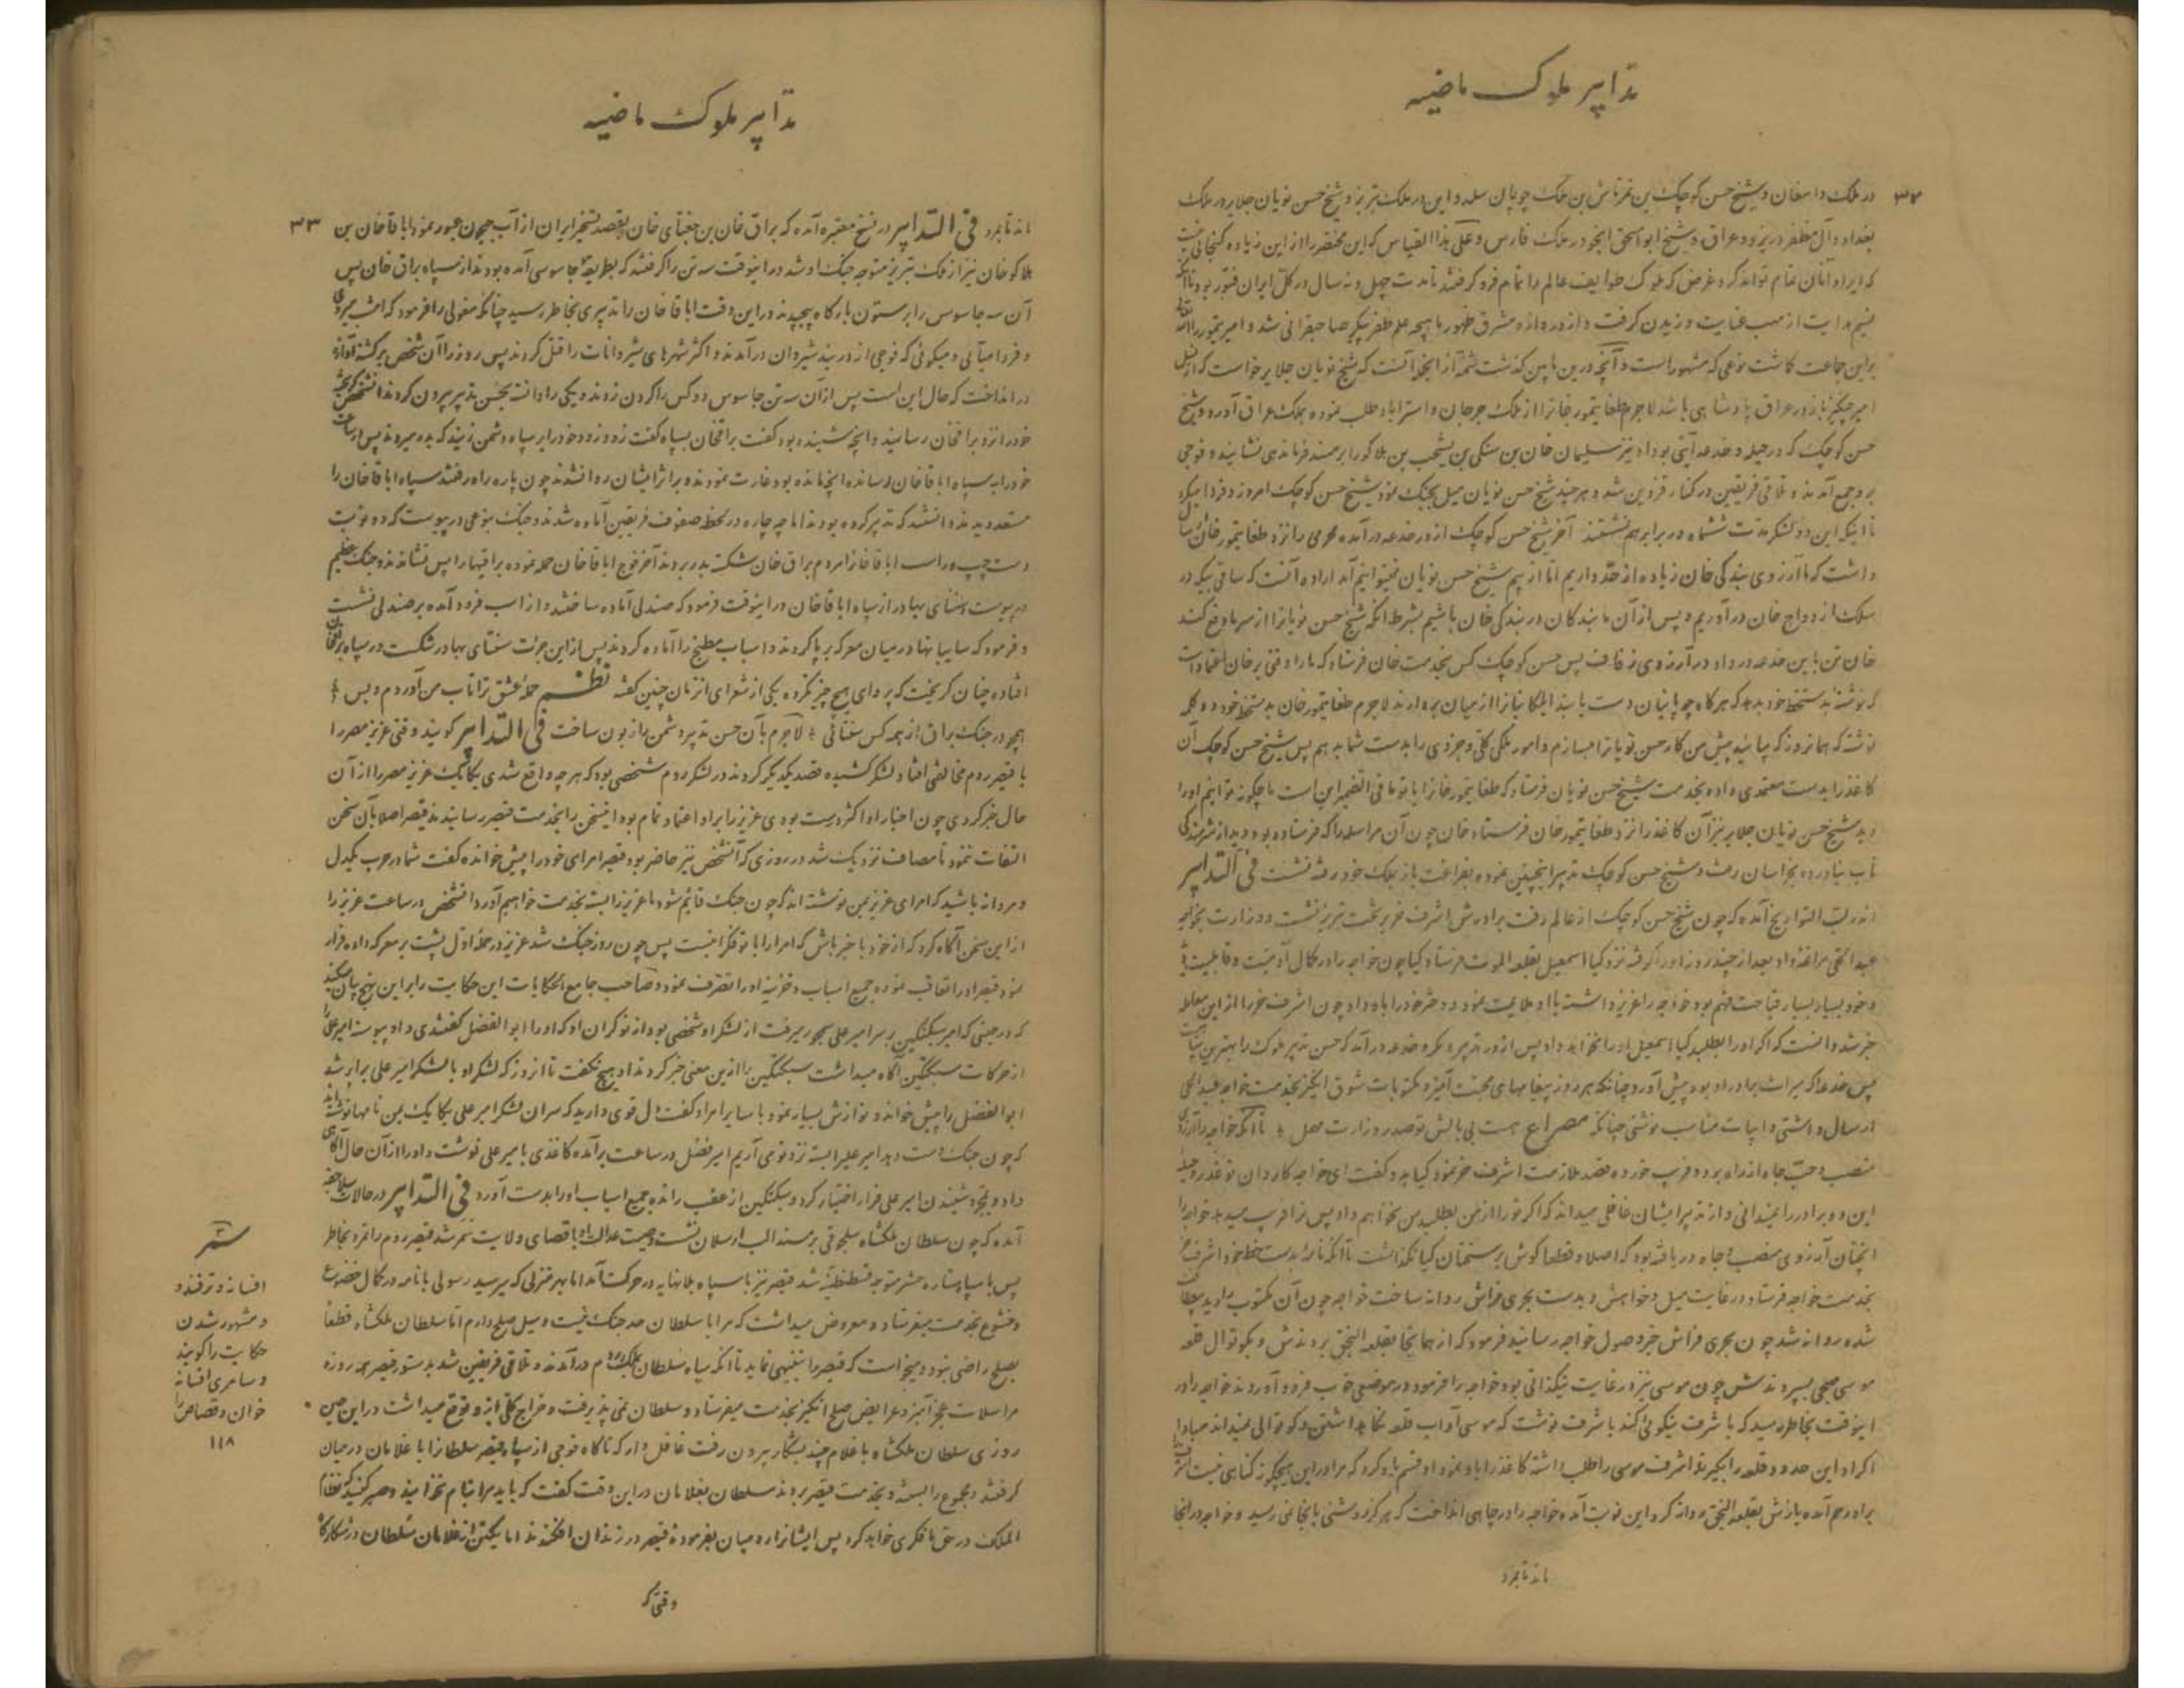 تدابیر ملوک ماضیه
۳۲
در ملک دامغان و شیخ حسن کوچک بن تمرتاش بن ملک چوپان سلدو این در ملک تبریز و شیخ حسن نویان جلایر در ملک
بغداد و آل مظفر در یزد و عراق و شیخ ابواسحق اینجو در ملک فارس و علی هذا القیاس که این مختصر را از این زیاده گنجایی نیست
که ایراد آنان تمام تواند کرد غرض که ملوک طوایف عالم را تمام فرو گرفتند تا مدت چهل و نه سال در کل ایران فتور بود تا آنکه
نسیم هدایت از مهب عنایت وزیدن گرفت و از دروازه مشرق ظهور ماهیچه علم ظفر پیکر صاحبقرانی شد و امیر تیمور را الله تعالی
براین جماعت گماشت نوعی که مشهور است و آنچه درین مابین گذشت شمه از اینجا آنست که شیخ نویان جلایر خواست که از نسل
امیر چنگیز باز در عراق پادشاهی باشد لاجرم طغا تیمور خانرا از ملک جرجان و استراباد طلب نموده بملک عراق آورد و شیخ
حسن کوچک که در حیله و خدعه آیتی بود او نیز سلیمان خان بن سنکی بن یشمت بن هلاکو را بر مسند فرماندهی نشانید و فوجی
برو جمع آمدند و تلاقی فریقین در کنار قزوین شد و هرچند شیخ حسن نویان میل بجنگ نمود شیخ حسن کوچک امروز و فردا میکرد
تا اینکه این دو لشکر مدت ششماه در برابر هم نشستند آخر شیخ حسن کوچک از در خدعه درآمده محرمی را نزد طغا تیمور خان ارسال
داشت که ما آرزوی بندگی خان زیاده از حد داریم اما از بیم شیخ حسن نویان نمیتوانیم آمد اراده آنست که ساقی بیکه در
سلک ازدواج خان درآوریم و پس از آن ما بندگان در بندگی خان باشیم بشرط آنکه شیخ حسن نویانرا از سر ما دفع کند
خان تن باین خدعه در داد در آرزوی زفاف پس حسن کوچک کس بخدمت خان فرستاد که ما را وقتی بر خان اعتماد است
که نوشته بدستخط خود بدهد که هرگاه چوپانیان دست یابند ایلکانیانرا از میان بردارند لاجرم طغا تیمور خان بدستخط خود دو کلمه
نوشت که همانروز که بیائید پیش من کار حسن نویانرا بسازم و امور ملکی کلی و جزوی را بدست شما بدهم پس شیخ حسن کوچک آن
کاغذ را بدست معتمدی داده بخدمت شیخ حسن نویان فرستاد که طغا تیمور خانرا با تو ما فی الضمیر این است ما چگونه توانیم اورا
دید شیخ حسن نویان جلایر نیز آن کاغذ را نزد طغا تیمور خان فرستاد خان چون آن مراسله را که فرستاده بود دید از شرمندگی
تاب نیاورده بخراسان رفت و شیخ حسن کوچک تدبیر اینچنین نموده بفراغت باز بملک خود رفته نشست فی التدابیر
اندر لب التواریخ آمده که چون شیخ حسن کوچک از عالم رفت برادرش اشرف خر بر تخت تبریز نشست و وزارت بخواجه
عبدالحی مراغه داد بعد از چند روز اورا گرفته نزد کیا اسمعیل بقلعه الموت فرستاد کیا چون خواجه را در کمال آدمیت و قابلیت
و خود بسیار بسیار قباحت فهم بود خواجه را عزیز داشت با او ملایمت نمود و دختر خود را باو داد چون اشرف خر را از این معامله
خبر شد دانست که اگر اورا بطلبد کیا اسمعیل اورا نخواهد داد پس از در تدبیر و مکر و خدعه درآمد که حسن تدبیر ملوک را بهترین
پس خدعه که میراث برادر او بود پیش آورد چنانکه هر روز پیغامهای محبت آمیز و مکتوبات شوق انگیز بخدمت خواجه عبدالحی
ارسال داشتی و ابیات مناسب نوشتی چنانکه مصراع هست بی بالش تو صدر وزارت مهمل تا آنکه خواجه را آرزوی
منصب و حب جاه از راه برد و فریب خورده قصد ملازمت اشرف خر نمود کیا بدو گفت ای خواجه کاردان تو غدر و حیله
این دو برادر را نمیدانی و از تدبیر ایشان غافلی میداند که اگر تورا از من بطلبد من نخواهم داد پس ترا فریب میدهد خواجه را
آنچنان آرزوی منصب و جاه دریافته بود که اصلا و قطعا گوش بر سخنان کیا نگذاشت تا آنکه نامه بدستخط خود اشرف
بخدمت خواجه فرستاد در غایت میل و خواهش و بدست بحری فراش روانه ساخت خواجه چون آن مکتوب را دید
شده روانه شد چون بحری فراش خبر وصول خواجه رسانید فرمود که از همانجا بقلعه النجق بردندش و بکوتوال قلعه
موسی سپردندش چون موسی نیز در غایت نیکذاتی بود خواجه را فرمود در موضعی خوب فرود آوردند خواجه را در
اینوقت بخاطر رسید که با اشرف نیکوئی کند باشرف نوشت که موسی آداب قلعه نگاهداشتن و کوتوالی نمیداند مبادا
اکراد این حدود قلعه را بگیرند اشرف موسی را طلب داشته کاغذ را باو نمود او قسم یاد کرد که مرا در این هیچگونه گناهی نیست اشرف
برو رحم آمده بازش بقلعه النجق روانه کرد این نوبت آمده خواجه را در چاهی انداخت که هرگز روشنی بانجا نمیرسید و خواجه در آنجا
ماند تا بمرد
تدابیر ملوک ماضیه
۳۳
ماند تا بمرد فی التدابیر در نسخ معتبره آمده که براق خان بن جغتای خان بقصد تسخیر ایران از آب جیحون عبور نمود ابا قاخان بن
هلاکو خان نیز از ملک تبریز متوجه جنگ او شد در اینوقت سه تن را گرفتند که بطریقه جاسوسی آمده بودند از سپاه براق خان پس
آن سه جاسوس را بر ستون بارگاه پیچیدند در این وقت ابا قاخان را تدبیری بخاطر رسید چنانکه مغولی را فرمود که امشب میروی
و فردا میآئی و میگوئی که فوجی از دربند شیروان درآمدند و اکثر شهرهای شیروانات را قتل کردند پس روز را آن شخص برگشته آوازه
در انداخت که حال این است پس از آن سه تن جاسوس دو کس را گردن زدند و یکی را دانسته بحسن تدبیر بیرون کردند آنشخص گریخته
خود را نزد براقخان رسانید و آنچه شنیده بود گفت براقخان بسپاه گفت زود زود خود را بر سپاه دشمن زنید که بدر میروند پس
خود را به سپاه ابا قاخان رسانده آنچه مانده بود غارت نمودند و بر اثر ایشان روانشدند چون پاره راه رفتند سپاه ابا قاخان را
مستعد دیدند دانستند که تدبیر کرده بودند اما چه چاره در لحظه صفوف فریقین آماده شدند و جنگ بنوعی در پیوست که دو نوبت
دست چپ و راست ابا قاخانرا مردم براق خان شکسته بدر بردند آخر فوج ابا قاخان حمله نموده براقیها را پس نشاندند و جنگ عظیم
در پیوست سنتای بهادر از سپاه ابا قاخان در اینوقت فرمود که صندلی آماده ساختند و از اسب فرود آمده بر صندلی نشست
و فرمود که سایبانها در میان معرکه برپا کردند و اسباب مطبخ را آماده کردند پس از این جرئت سنتای بهادر شکست در سپاه براقخان
افتاده چنان گریخت که پروای هیچ چیز نکرده یکی از شعرای آنزمان چنین گفته نظم حمله عشق ترا تاب من آوردم و بس
همچو در جنگ براق از همه کس سنتائی لاجرم بآن حسن تدبیر دشمن را زبون ساخت فی التدابیر گویند وقتی عزیز مصر را
با قیصر روم مخالفتی افتاد لشکر کشیده قصد یکدیگر کردند در لشکر روم شخصی بود که هر چه واقع شدی یکایک عزیز مصر را از آن
حال خبر کردی چون اخبار او اکثر درست بودی عزیز را براو اعتماد تمام بود اینسخن را بخدمت قیصر رسانیدند قیصر اصلا بآن سخن
التفات ننمود تا مصاف نزدیک شد در روزی که آنشخص نیز حاضر بود قیصر امرای خود را پیش خوانده گفت شما در حرب یکدل
و مردانه باشید که امرای عزیز بمن نوشته اند که چون جنگ قایم شود ما عزیز را بسته بخدمت خواهیم آورد آنشخص در ساعت عزیز را
از این سخن آگاه کرد که از خود با خبر باش که امرا را با تو فکرانیست پس چون روز جنگ شد عزیز در حمله اول پشت بر معرکه داده فرار
نمود قیصر اورا تعاقب نموده جمیع اسباب و خزینه اورا تصرف نمود و صاحب جامع الحکایات این حکایت را براین نهج بیان میکند
که در حینی که امیر سبکتکین بر سر امیر علی سمجور میرفت از لشکر او شخصی بود از نوکران او که اورا ابوالفضل گفتندی و او پیوسته امیر علی را
از حرکات سبکتکین آگاه میداشت سبکتکین را ازین معنی خبر کردند او هیچ نگفت تا آنروز که لشکر او با لشکر امیر علی برابر شد
ابوالفضل را پیش خواند و نوازش بسیار نمود با سایر امرا و گفت دل قوی دارید که سران لشکر امیر علی یکایک بمن نامها نوشته اند
که چون جنگ دست دهد امیر علیرا بسته نزد تو می آریم امیر فضل در ساعت برآمده کاغذی با میر علی نوشت و اورا از آن حال آگاهی
داد و بمجرد شنیدن امیر علی فرار اختیار کرد و سبکتکین از عقب رانده جمیع اسباب اورا بدست آورد فی التدابیر در حالات سلاجقه
آمده که چون سلطان ملکشاه سلجوقی بر مسند الب ارسلان نشست وصیت عدالت او باقصای ولایت سمر شد قیصر روم را تمرد بخاطر
پس با سپاه ستاره حشر متوجه قسطنطنیه شد قیصر نیز با سپاه بلانهایه در حرکت آمد اما بهر منزلی که میرسید رسولی با نامه در کمال خضوع
و خشوع بخدمت میفرستاد و معروض میداشت که مرا با سلطان حد جنگ نیست و میل صلح دارم اما سلطان ملکشاه قطعا
بصلح راضی نبود و میخواست که قیصر را تنبیهی نماید تا آنکه سپاه سلطان بملک روم درآمدند و تلاقی فریقین شد بدستور قیصر همه روزه
مراسلات عجز آمیز و عرایض صلح انگیز بخدمت میفرستاد و سلطان نمی پذیرفت و خراج کلی ازو توقع میداشت در این حین
روزی سلطان ملکشاه با غلام چند بشکار بیرون رفت غافل وار که ناگاه فوجی از سپاه قیصر سلطانرا با غلامان در میان
گرفتند و مجموع را بسته و بخدمت قیصر بردند سلطان بغلامان در این وقت گفت که باید مرا بنام نخوانید و صبر کنید که نظام
الملک در حق ما فکری خواهد کرد پس ایشانرا در میان بفرموده قیصر در زندان افکندند اما یکتن از غلامان سلطان در شکارگاه
وقتی که
سمر
افسانه و ترفند و
و مشهور شدن
حکایت را گویند
و سامری افسانه
خوان و قصاص را
۱۱۸